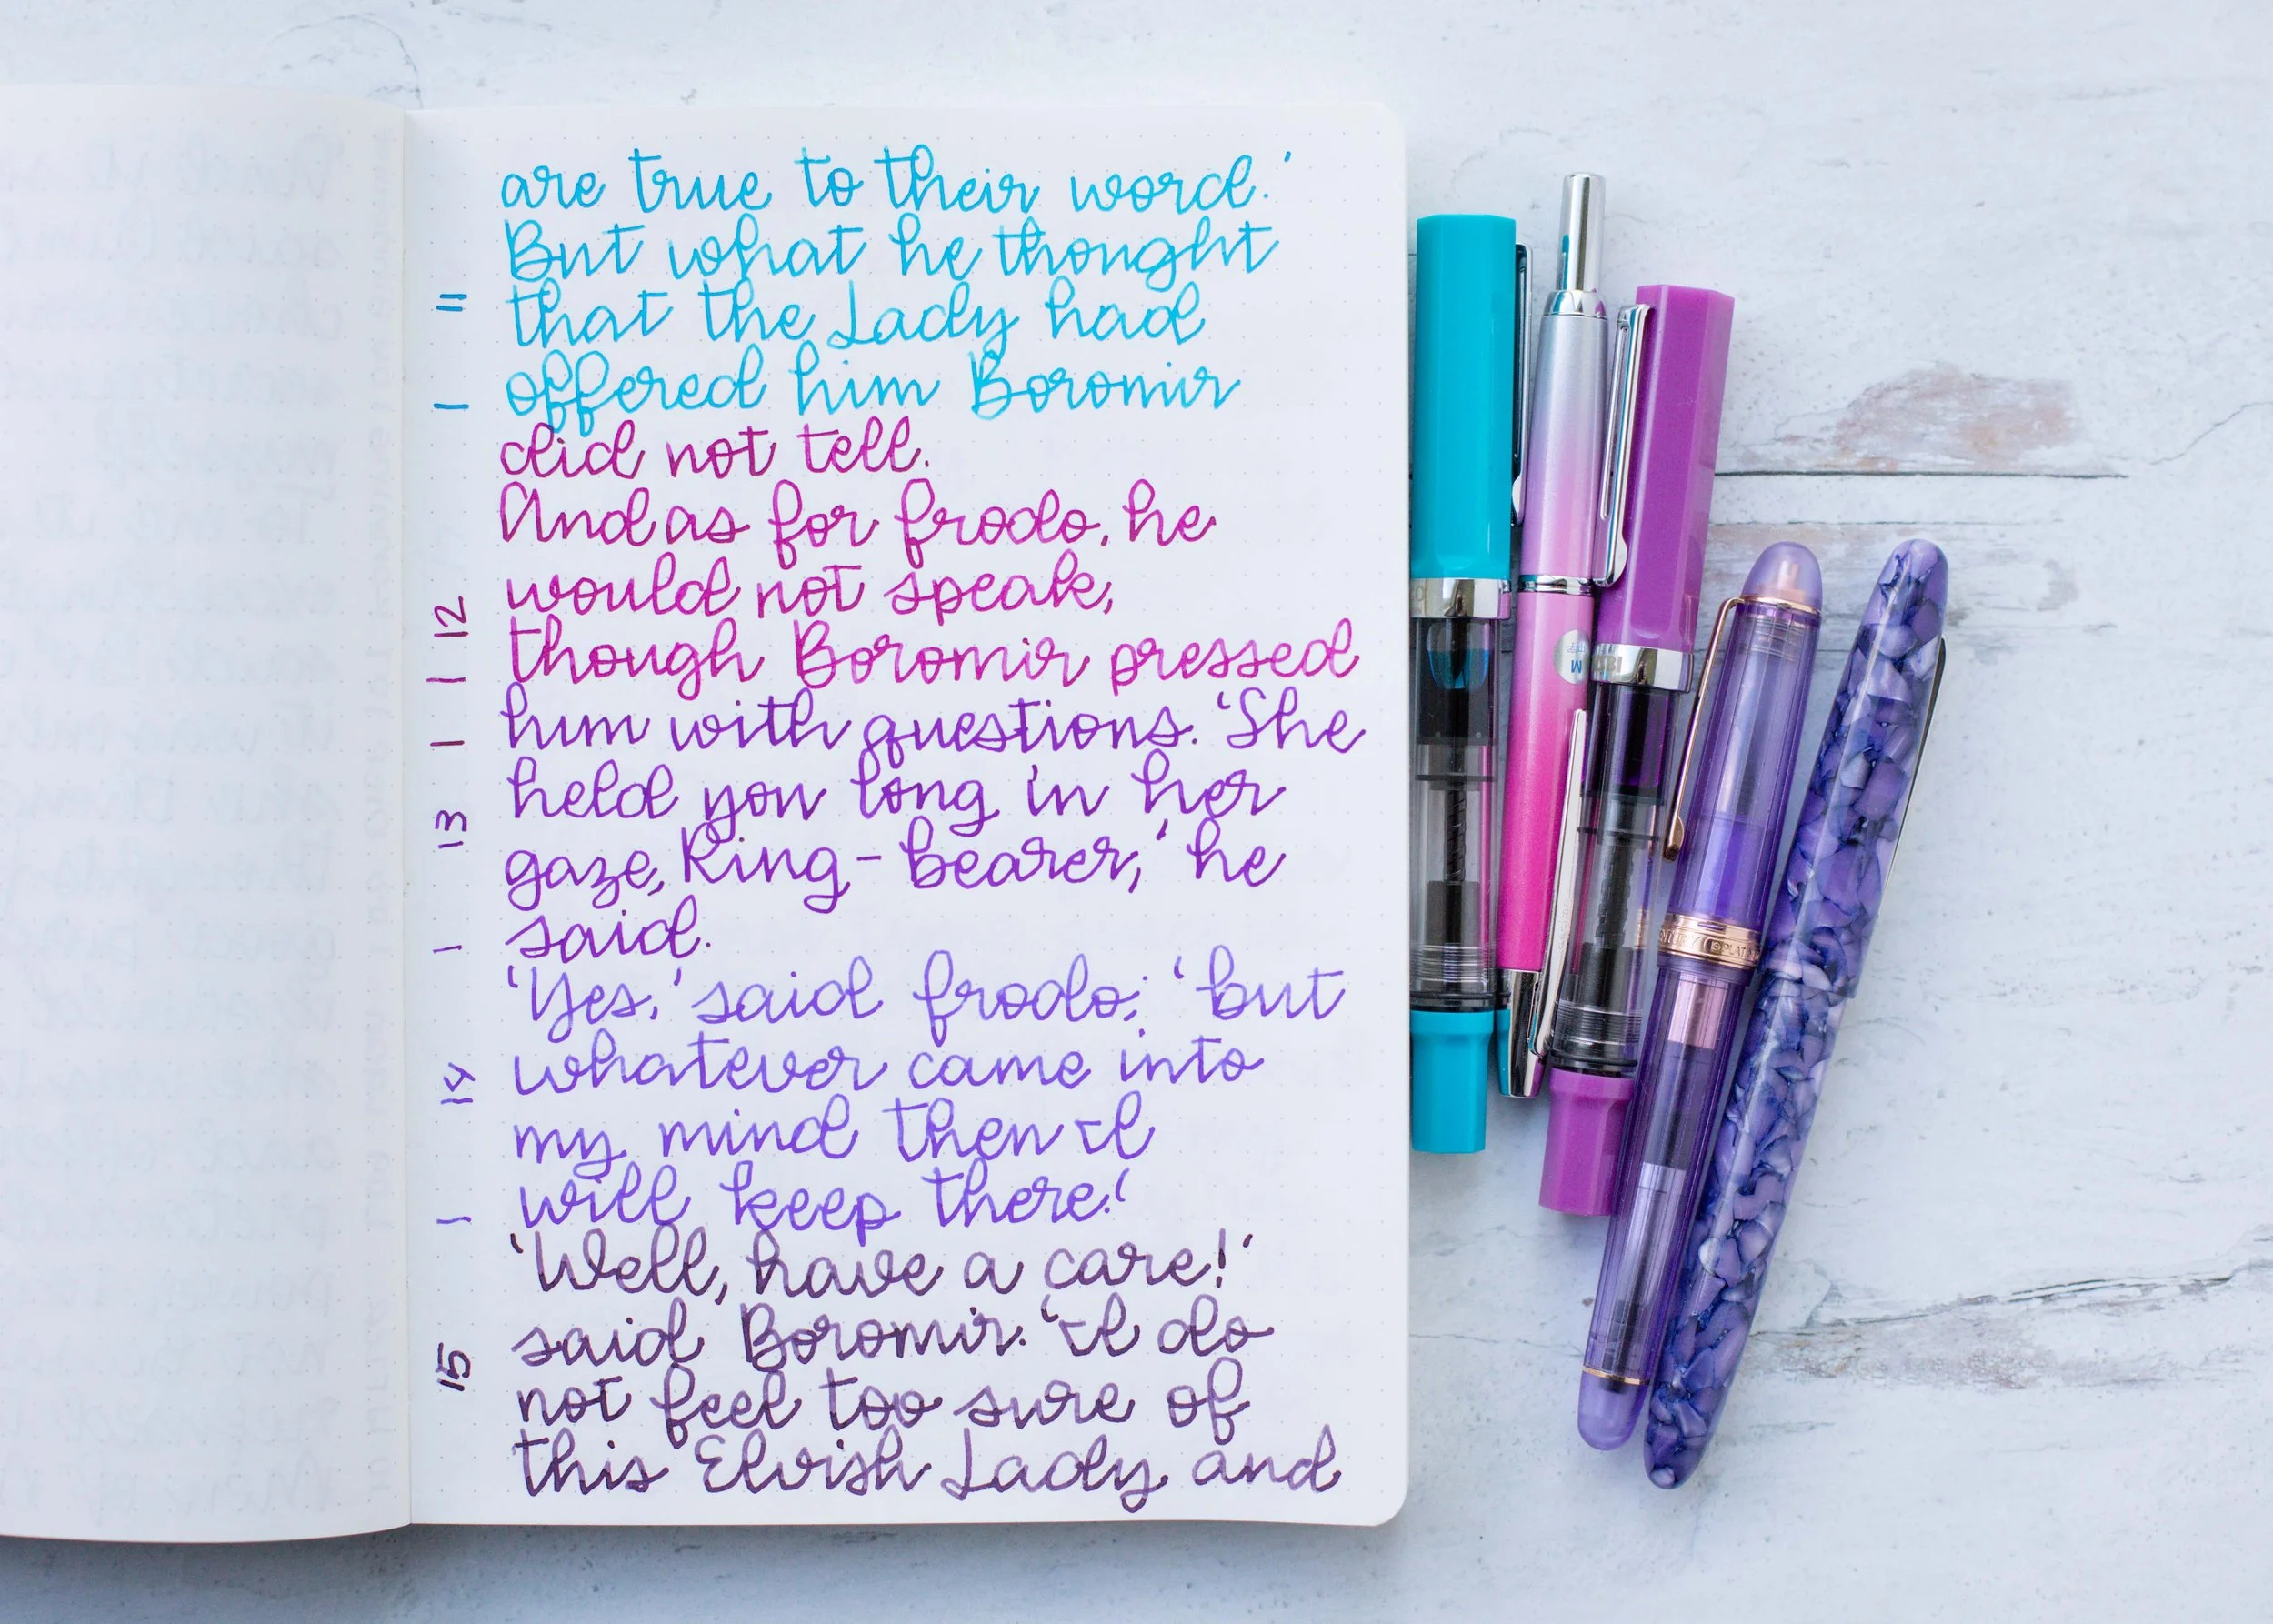 are true to their word.'
But what he thought
11
that the Lady had
1
offered him Boromir
did not tell.
And as for frodo, he
12
would not speak,
1
though Boromir pressed
1
him with questions. 'She
13
held you long in her
gaze, Ring-bearer,' he
1
said.
'Yes,' said frodo; 'but
14
whatever came into
my mind then I
1
will keep there.'
'Well, have a care!'
15
said Boromir. 'I do
not feel too sure of
this Elvish Lady and
M